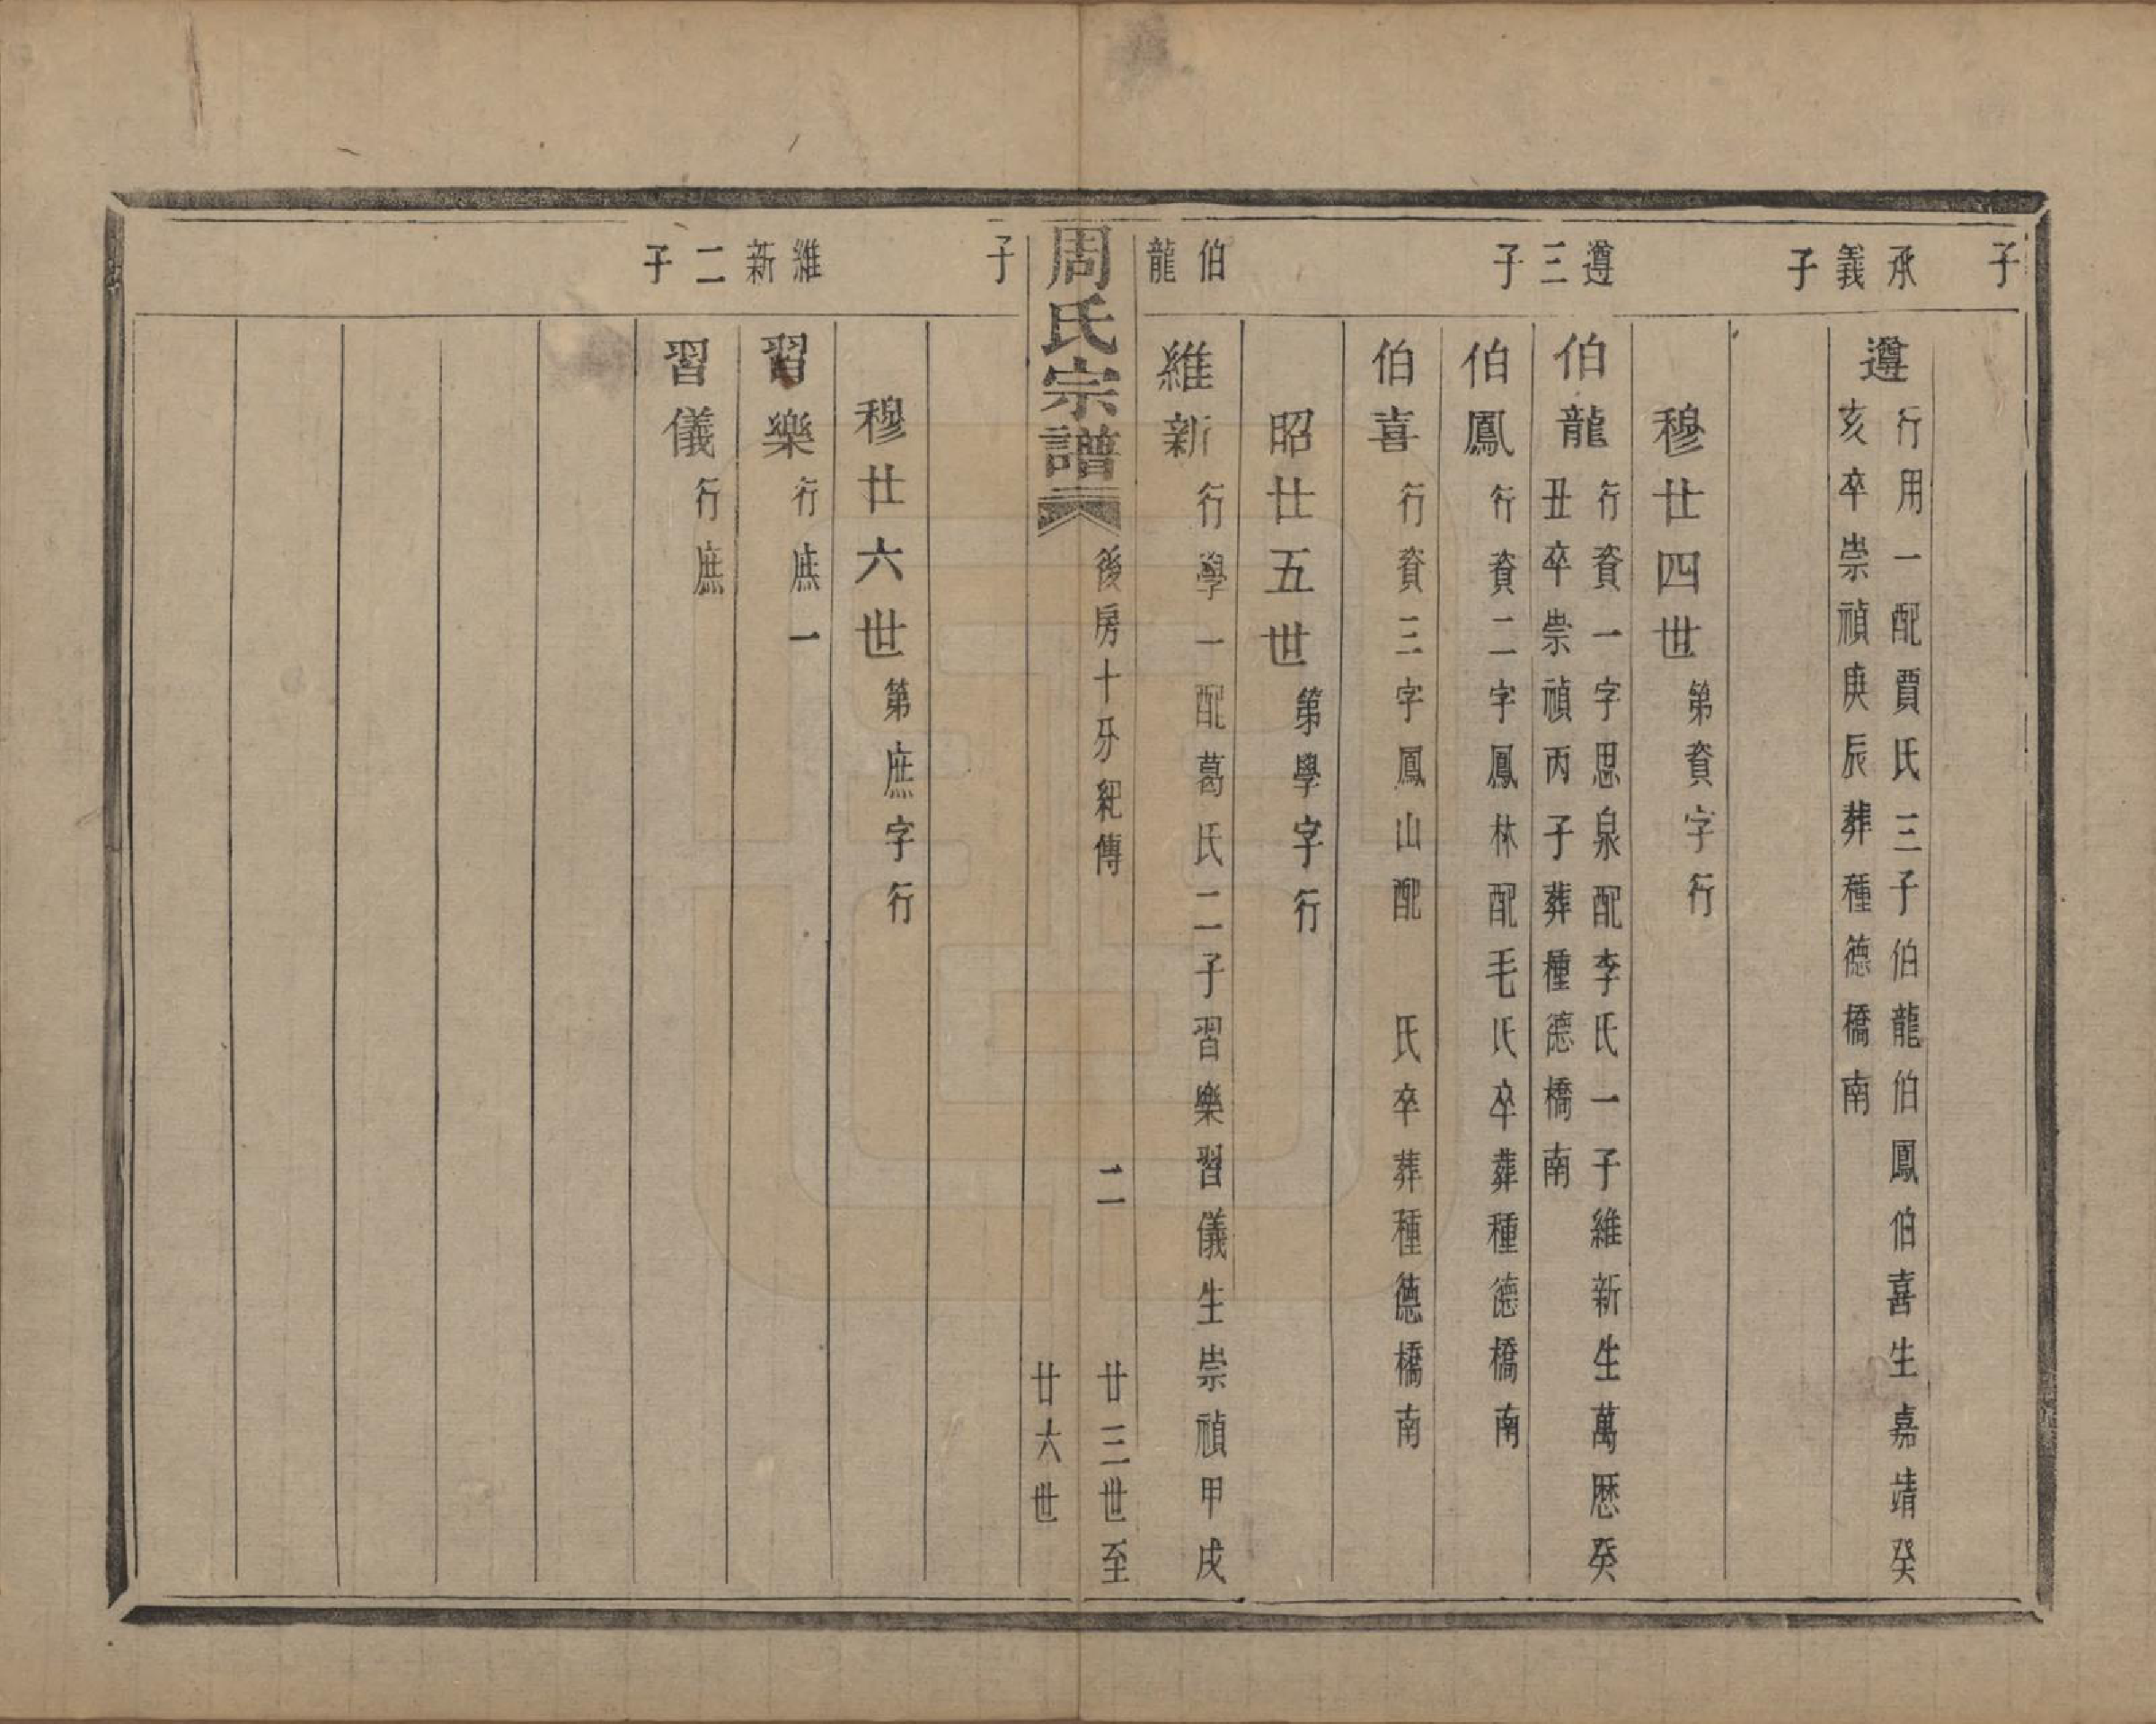 子
承義子
遵
行用一配賈氏三子伯龍伯鳳伯喜生嘉靖癸
亥卒崇禎庚辰葬種德橋南
穆廿四世第資字行
遵三子
伯龍
行資一字思泉配李氏一子維新生萬歷癸
丑卒崇禎丙子葬種德橋南
伯鳳行資二字鳳林配毛氏卒葬種德橋南
伯喜行資三字鳳山配 氏卒葬種德橋南
昭廿五世第學字行
伯龍
維新行學一配葛氏二子習樂習儀生崇禎甲戌
周氏宗譜
後房十分紀傳
二
廿三世至
廿六世
子
穆廿六世第庶字行
維新二子
習樂行庶一
習儀行庶